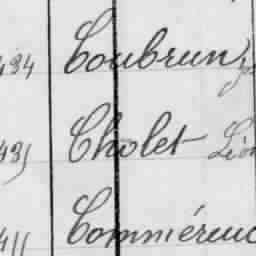 484 Coubrun
485 Cholet Léon
411 Commiéreuc